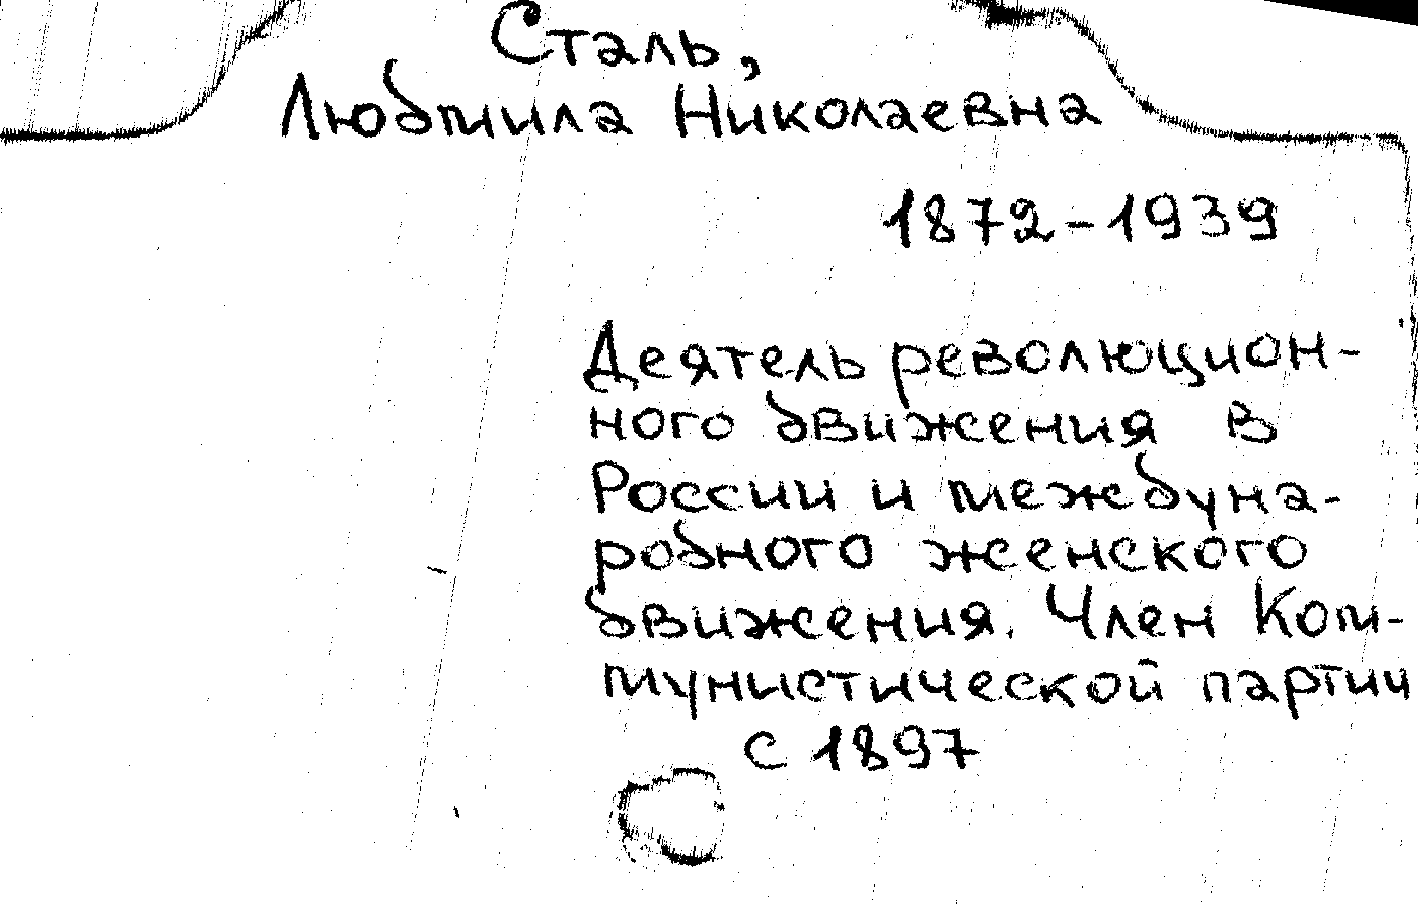 Сталь,
Людмила Николаевна
1872-1939
Деятель революцион-
ного движения в
России и междуна-
родного женского
движения. Член Ком-
мунистической партии
с 1897